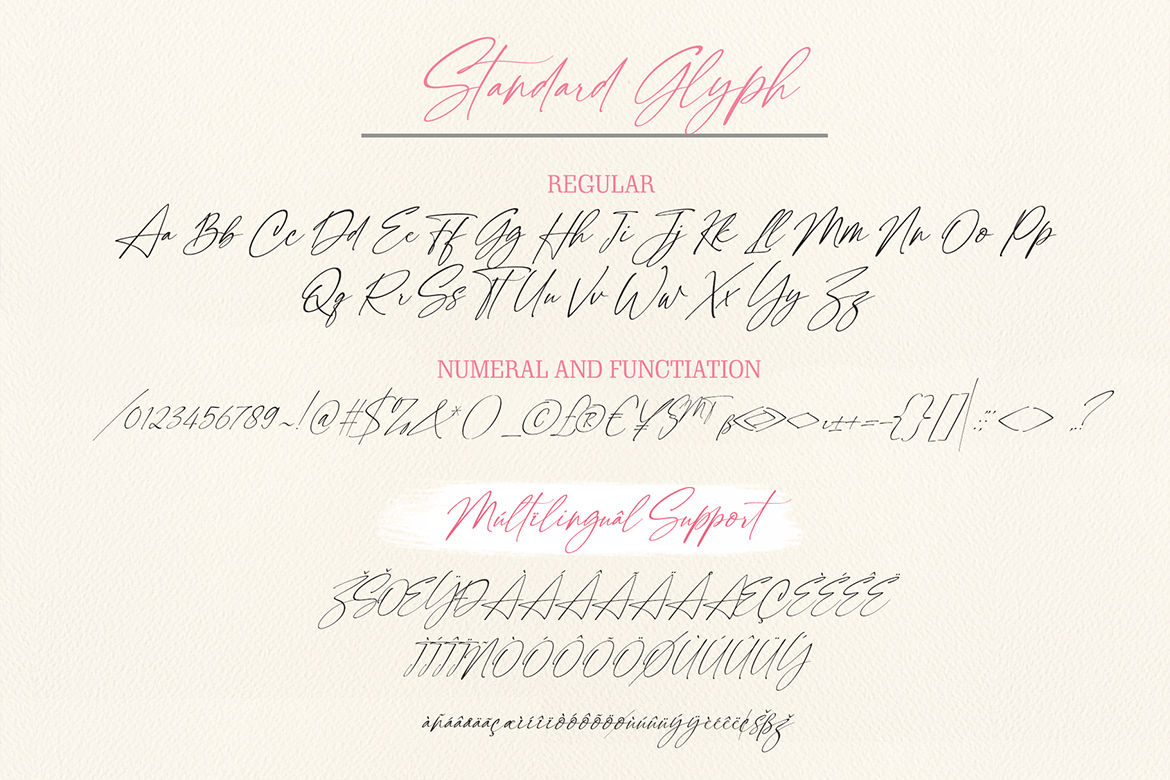 Standard Glyph
REGULAR
Aa Bb Cc Dd Ee Ff Gg Hh Ii Jj Kk Ll Mm Nn Oo Pp
Qq Rr Ss Tt Uu Vv Ww Xx Yy Zz
NUMERAL AND FUNCTIATION
/0123456789~!@#$%&*() _©£®€¥
Múltïlinguâl Support
ŽŠŒŸÐÀÁÂÃÄÅÆÇÈÉÊË
ÌÍÎÏÑÒÓÔÕÖØÙÚÛÜÝ